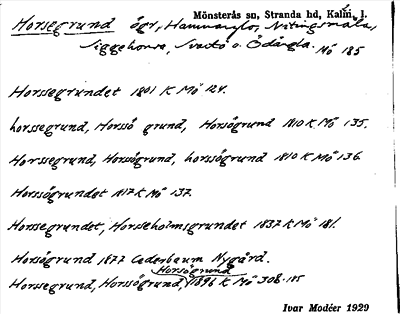 Mönsterås sn, Stranda hd, Kalm. l.
Horsegrund ögr, Hammarglo, Nötingsmåla,
Siggehorva, Svartö o. Ödängla. Mö 185
Horssegrundet 1801 K Mö 124.
horssegrund, Horssö grund, Horsögrund 1810 K Mö 135.
Horssegrund, Horssögrund, horssögrund 1810 K Mö 136
Horssögrundet 1817 K Mö 137.
Horssegrundet, Horseholmsgrundet 1837 K Mö 181.
Horsögrund 1877 Cederbaum Nygård.
Horsögrund
Horssegrund, Horssögrund, 1896 K Mö 308.185
Ivar Modéer 1929